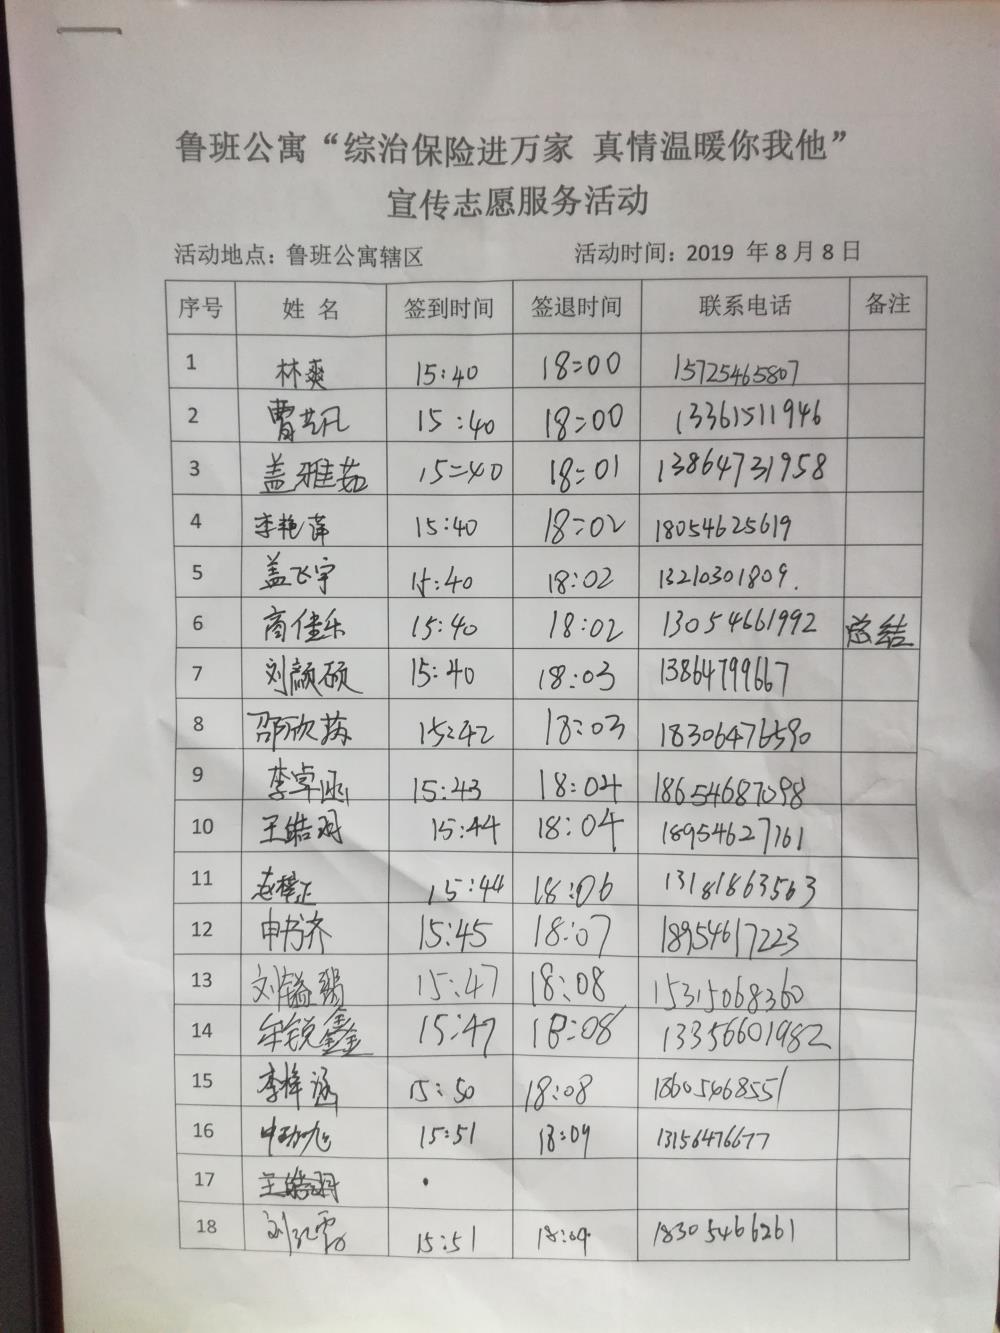 鲁班公寓“综治保险进万家 真情温暖你我他”
宣传志愿服务活动
活动地点：鲁班公寓辖区 活动时间：2019 年 8 月 8 日
序号 姓 名 签到时间 签退时间 联系电话 备注
1 林爽 15:40 18:00 15725465807
2 曹艺凡 15:40 18:00 13361511946
3 盖雅茹 15:40 18:01 13864731958
4 李艳萍 15:40 18:02 18054625619
5 盖飞宇 15:40 18:02 13210301809.
6 商佳乐 15:40 18:02 13054661992 总结
7 刘颜硕 15:40 18:03 13864799667
8 邵欣 15:42 18:03 18306476590
9 李卓涵 15:43 18:04 18654687098
10 王皓羽 15:44 18:04 18954627161
11 赵梓正 15:44 18:06 13181863563
12 申书齐 15:45 18:07 18954617223
13 刘镒 15:47 18:08 15315068360
14 牟锐鑫 15:47 18:08 13356601982
15 李梓涵 15:50 18:08 18605468551
16 15:51 18:09 13156476677
17 王皓羽
18 刘 15:51 18:09 18305466261